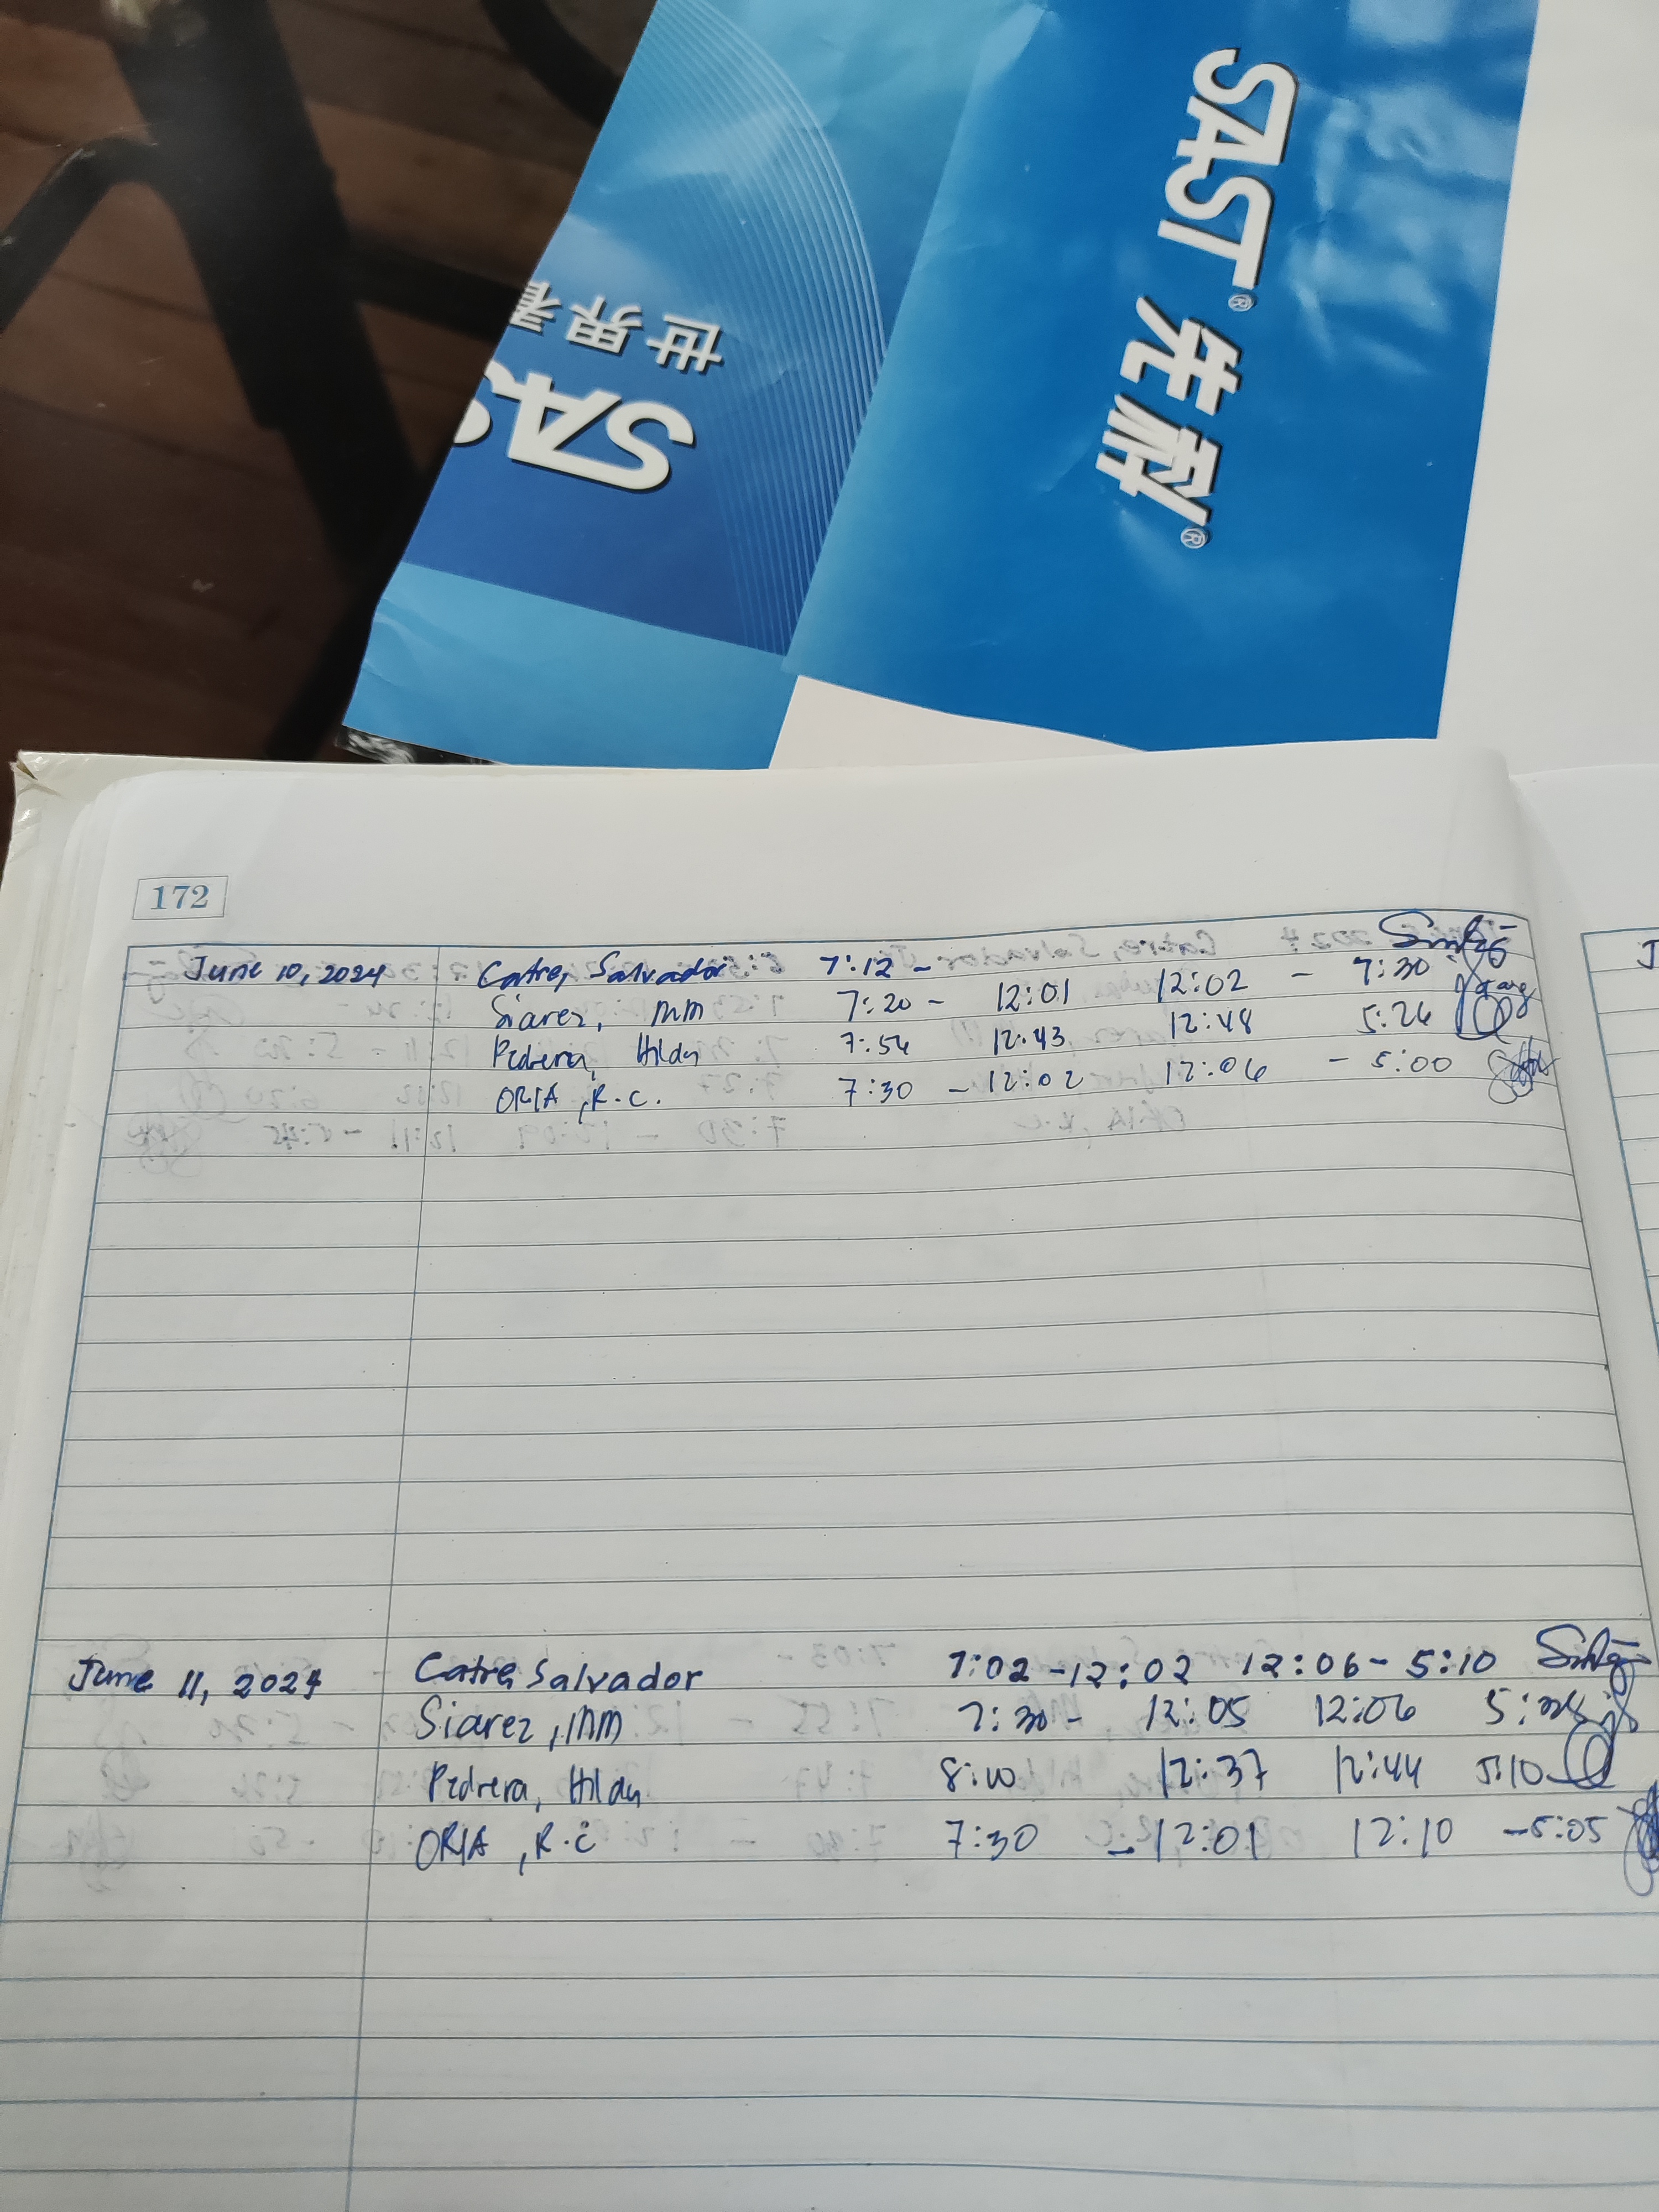 SAST® 先科®
世界看
SAS
172
June 10, 2024 Catre, Salvador 7:12 -
Siarez, MM 7:20 - 12:01 12:02 - 7:30
Pedrera, Hilda 7:54 12:43 12:48 5:26
ORIA, R.C. 7:30 - 12:02 12:06 - 5:00
June 11, 2024 Catre, Salvador 7:02 - 12:02 12:06 - 5:10
Siarez, MM 7:30 - 12:05 12:06
Pedrera, Hilda 8:10 12:37 12:44 5:10
ORIA, R.C 7:30 - 12:01 12:10 - 5:05